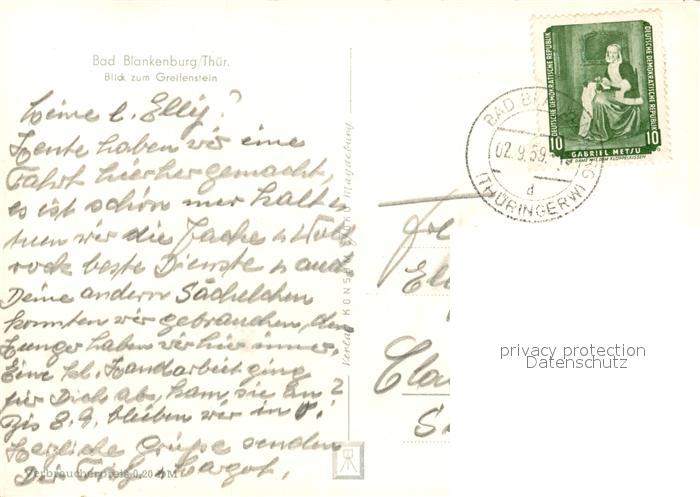 Bad Blankenburg/Thür.
Blick zum Greifenstein
Meine l. Elly!
Heute haben wir eine
Fahrt hierher gemacht,
es ist schön nur kalt u
tuen wir die Jacke u
rock beste Dienste u auch
Deine andern Sächelchen
konnten wir gebrauchen, den
Hunger haben wir hier immer.
Eine kl. Handarbeit ging
für Dich ab, kam sie an?
Bis 8.9. bleiben wir in
Herzliche Grüße senden
Dir Margot.
Verbraucherpreis 0,20 DM
Verlag KONSUM Magdeburg
BAD
02.9.59
d
(THÜRINGERW)
DEUTSCHE DEMOKRATISCHE REPUBLIK
DEUTSCHE DEMOKRATISCHE REPUBLIK
10
10
GABRIEL METSU
DIE DAME MIT DEM KLÖPPELKISSEN
privacy protection
Datenschutz